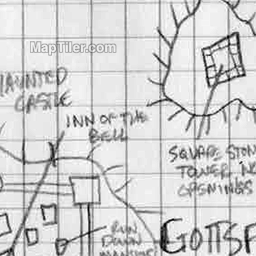 MapTiler.com
HAUNTED
CASTLE
INN OF THE
BELL
SQUARE STON
TOWER, NO
OPENINGS
RUN
DOWN
MANSION
GOTTSF